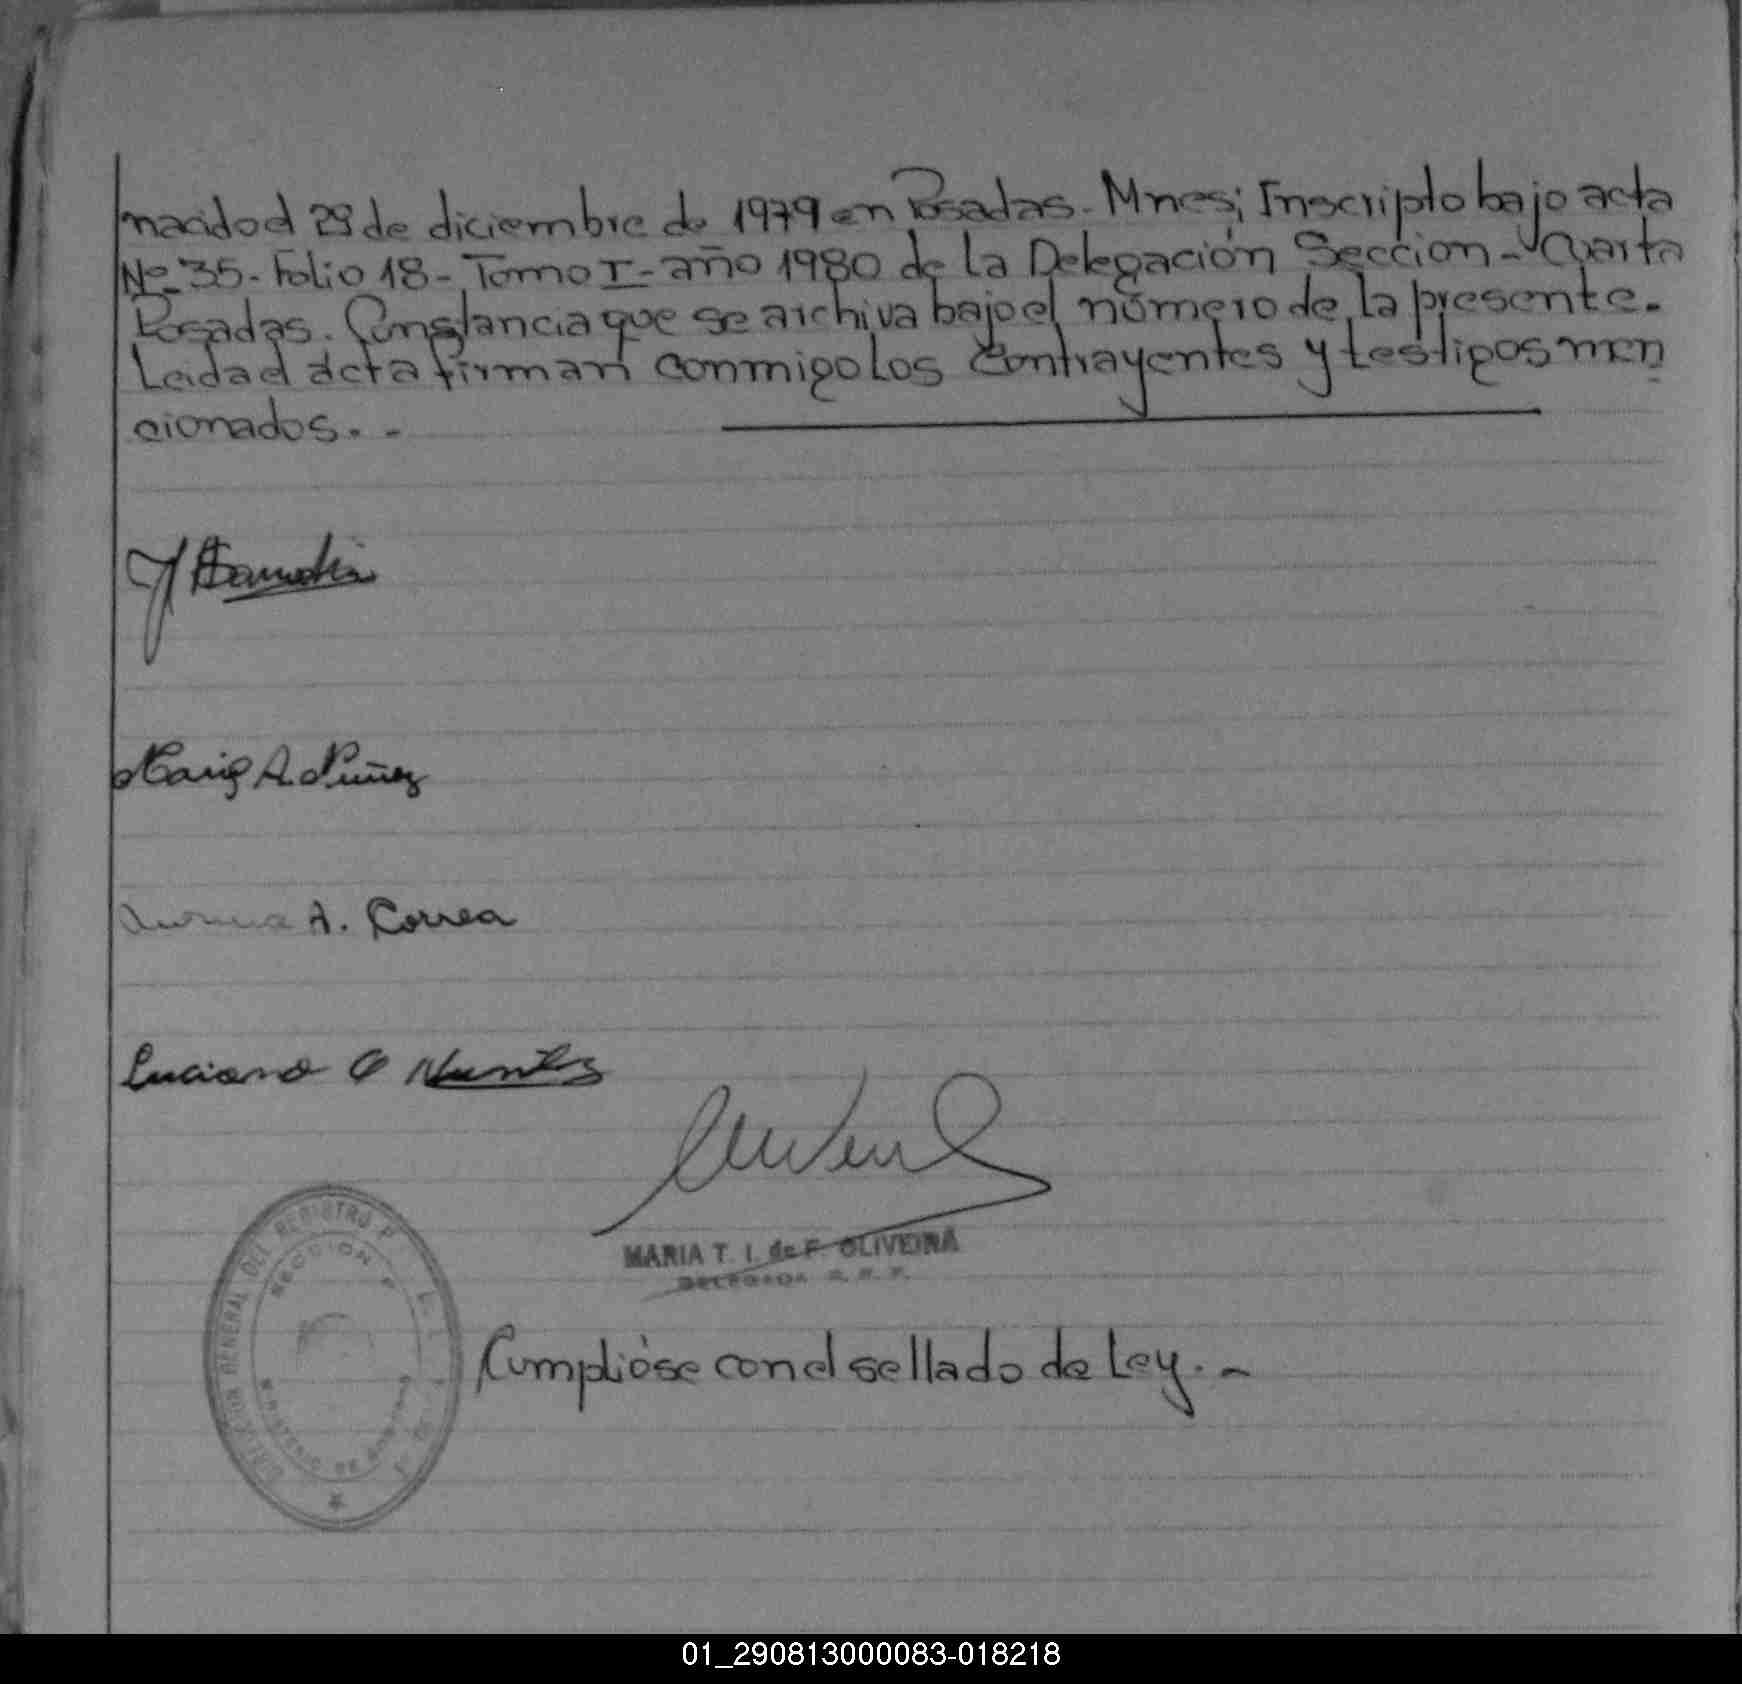 nacido el 29 de diciembre de 1979 en Posadas. Mnes; Inscripto bajo acta
Nº 35 - Folio 18 - Tomo I - año 1980 de la Delegación Sección - Cuarta
Posadas. Constancia que se archiva bajo el número de la presente.
Leida el acta firman conmigo los contrayentes y testigos men
cionados. . -
Maria A. Nuñez
A. Correa
Luciano
MARIA T. I. de F. OLIVEIRA
DELEGADA R. P. P.
DIRECCION GENERAL DEL REGISTRO P
SECCION
MINISTERIO DE GOBIERNO
Cumplióse con el sellado de Ley. . -
01_290813000083-018218